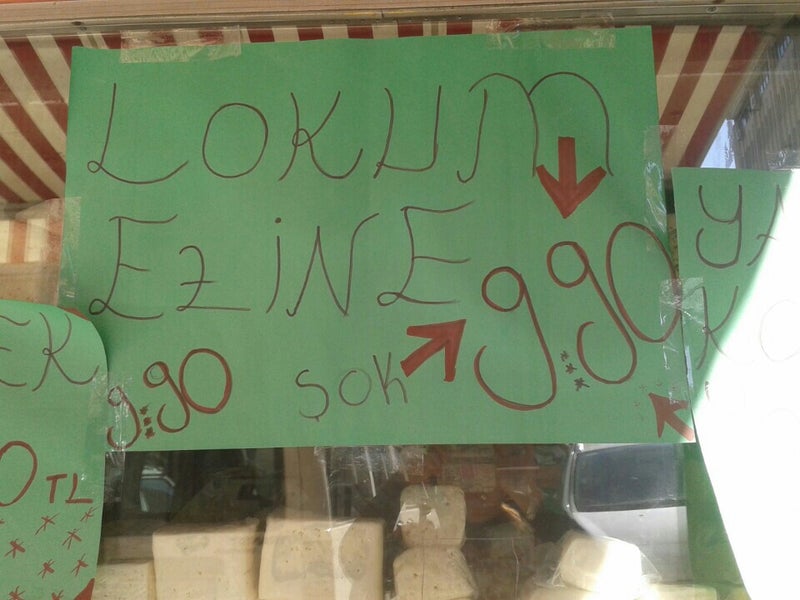 LOKUM
EZİNE 9.90
9.90 ŞOK
EK
0 TL
YA
KO